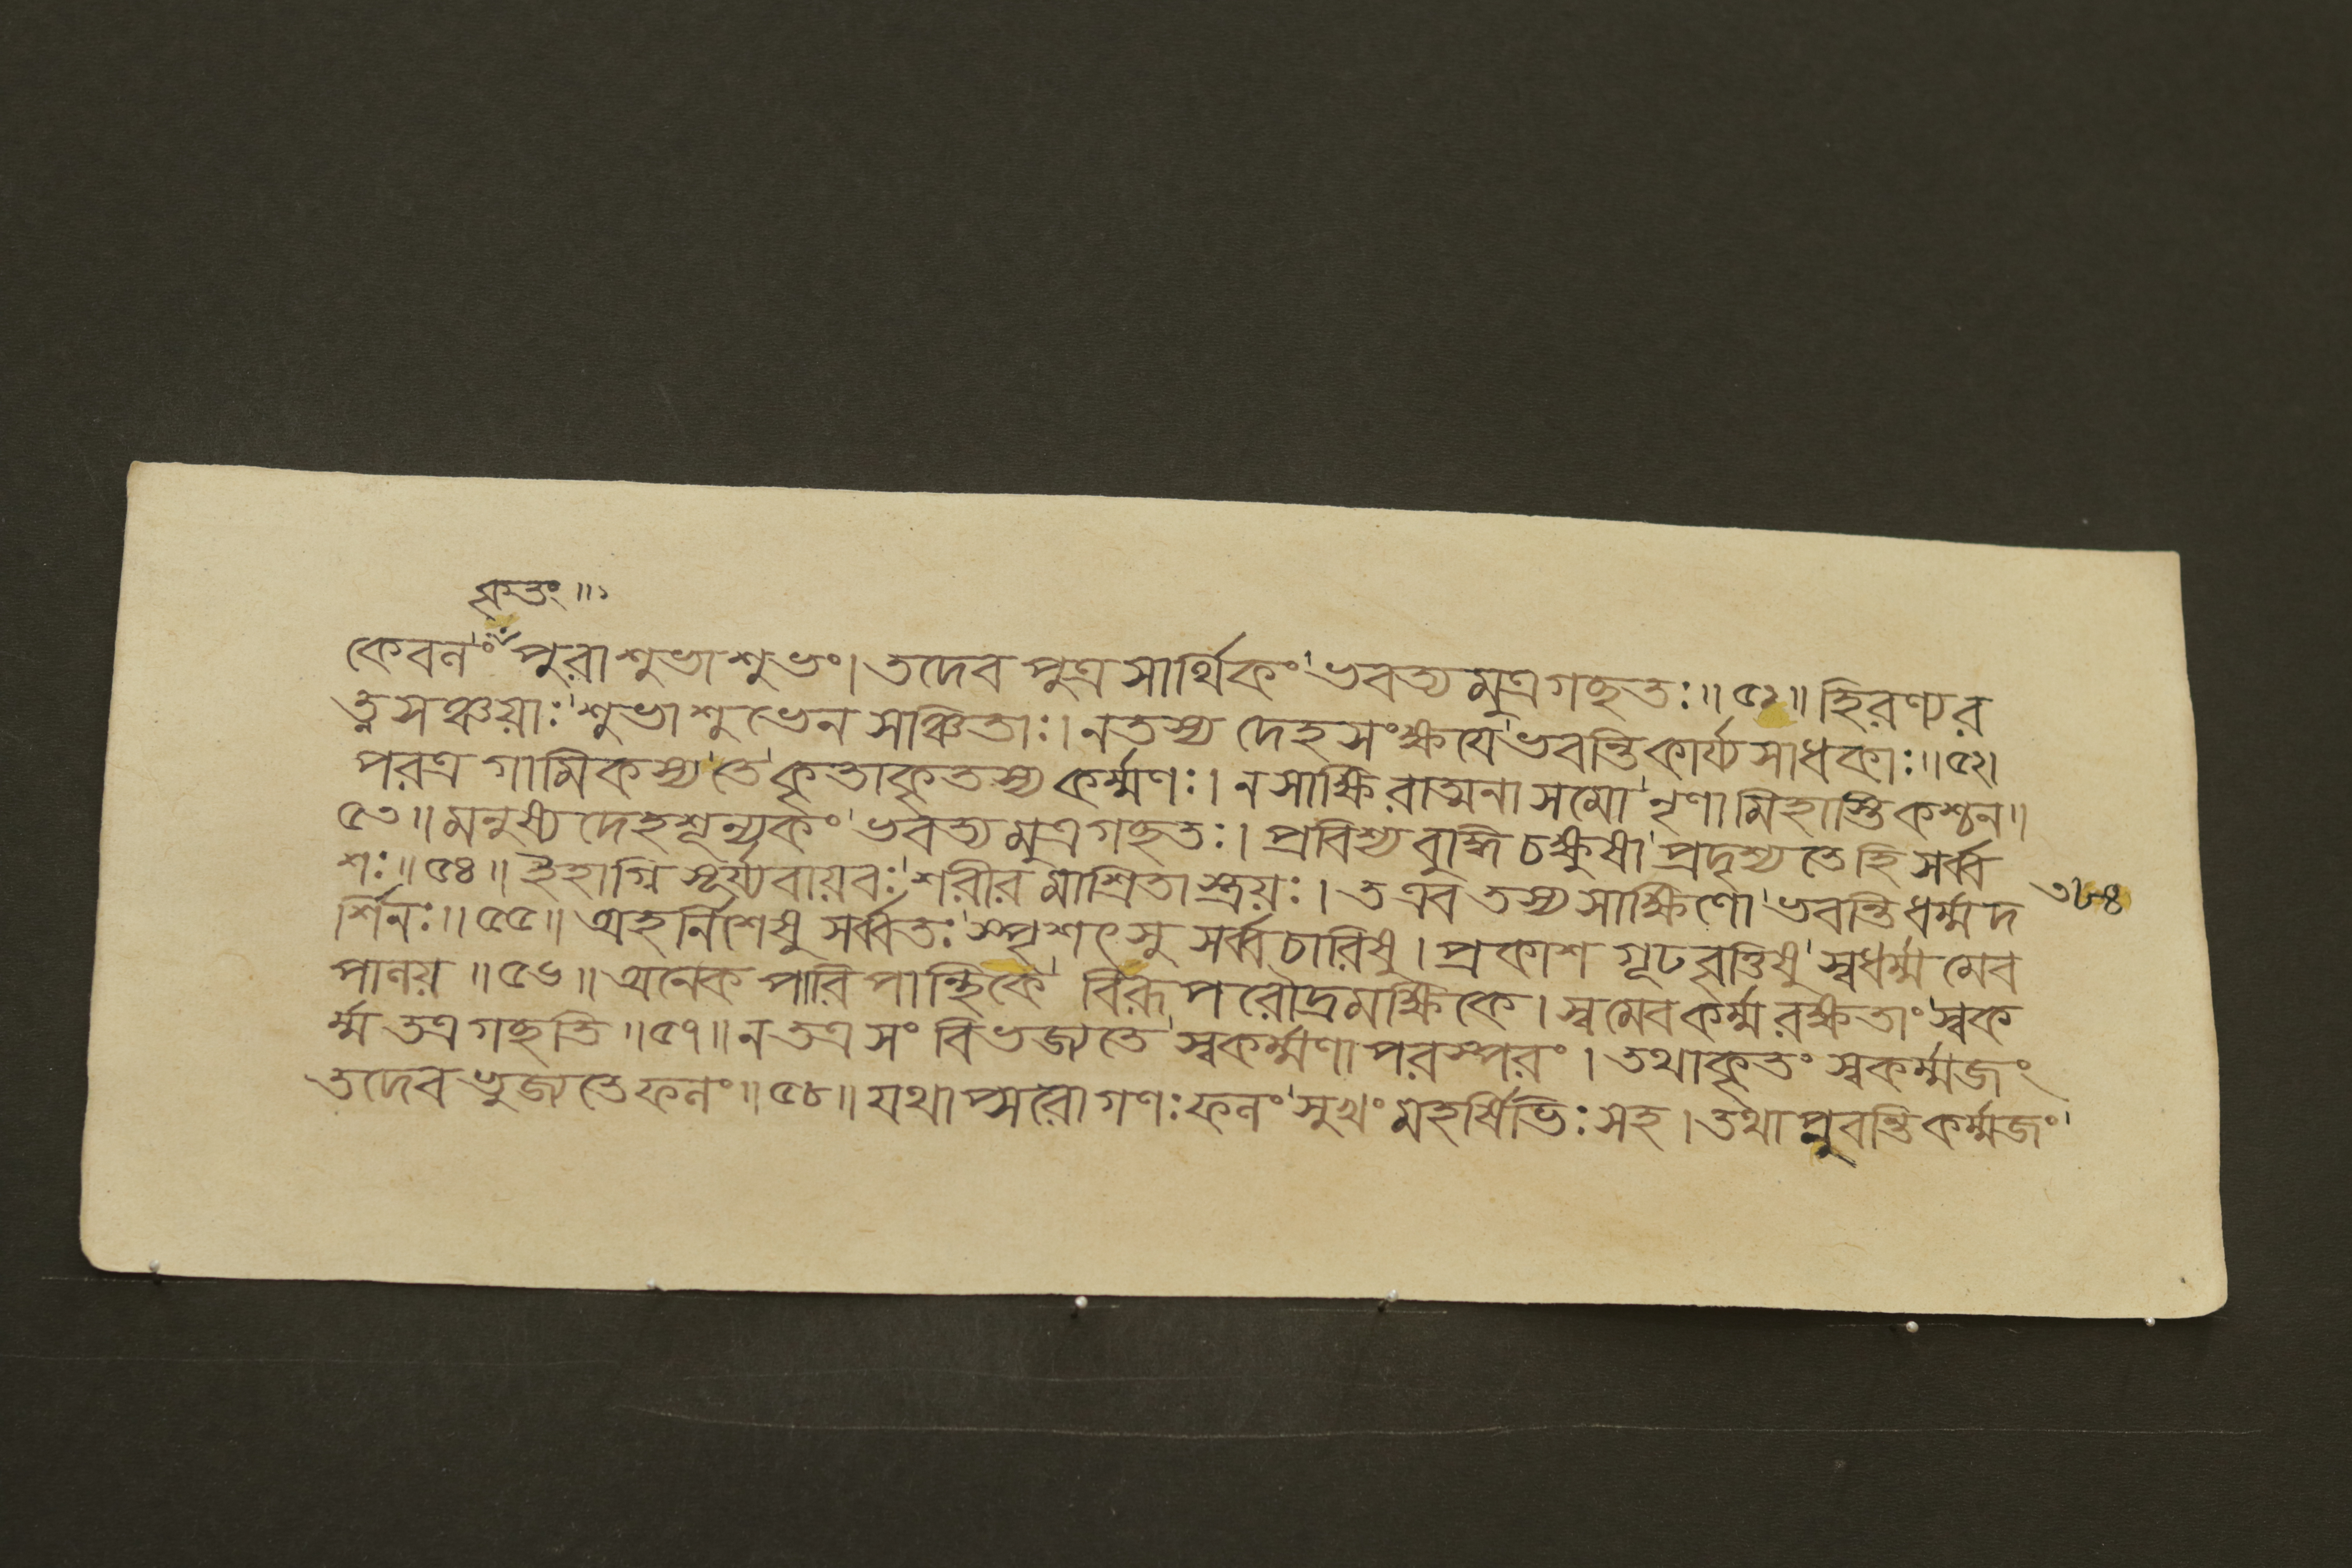 কৃতং॥১
কেবলং পুরা শুভাশুভং। তদেব পুত্র সার্থিকং ভবত্যমুত্র গচ্ছতঃ॥৫১॥ হিরণ্যর
ত্নসঞ্চয়াঃ শুভাশুভেন সঞ্চিতাঃ। ন তস্য দেহসংক্ষয়ে ভবন্তি কার্য্যসাধকাঃ॥৫২।
পরত্র গামিকস্য তে কৃতাকৃতস্য কর্ম্মণঃ। ন সাক্ষিরাত্মনা সমো নৃণামিহাস্তি কশ্চন॥
৫৩॥ মনুষ্যদেহশূন্যকং ভবত্যমুত্র গচ্ছতঃ। প্রবিশ্য বুদ্ধিচক্ষুষা প্রদৃশ্যতে হি সর্ব্ব
শঃ॥৫৪॥ ইহাগ্নিসূর্য্যবায়বঃ শরীরমাশ্রিতাস্ত্রয়ঃ। ত এব তস্য সাক্ষিণো ভবন্তি ধর্ম্মদ
র্শিনঃ॥৫৫॥ অহর্নিশেষু সর্ব্বতঃ স্পৃশৎসু সর্ব্বচারিষু। প্রকাশগূঢ়বৃত্তিষু স্বধর্ম্মমেব
পালয়॥৫৬॥ অনেকপারিপান্থিকে বিরূপরৌদ্রমক্ষিকে। স্বমেব কর্ম্ম রক্ষতাং স্বক
র্ম্ম তত্র গচ্ছতি॥৫৭॥ ন তত্র সংবিভজ্যতে স্বকর্ম্মণা পরস্পরং। তথা কৃতং স্বকর্ম্মজং
তদেব ভুজ্যতে ফলং॥৫৮॥ যথাপ্সরোগণঃ ফলং সুখং মহর্ষিভিঃ সহ। তথাপ্নুবন্তি কর্ম্মজং
৩৮৪